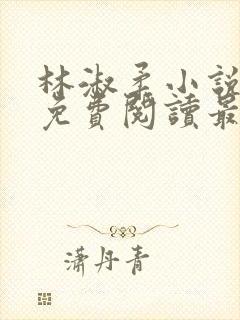 林淑柔小說
免費閱讀最
瀟丹青